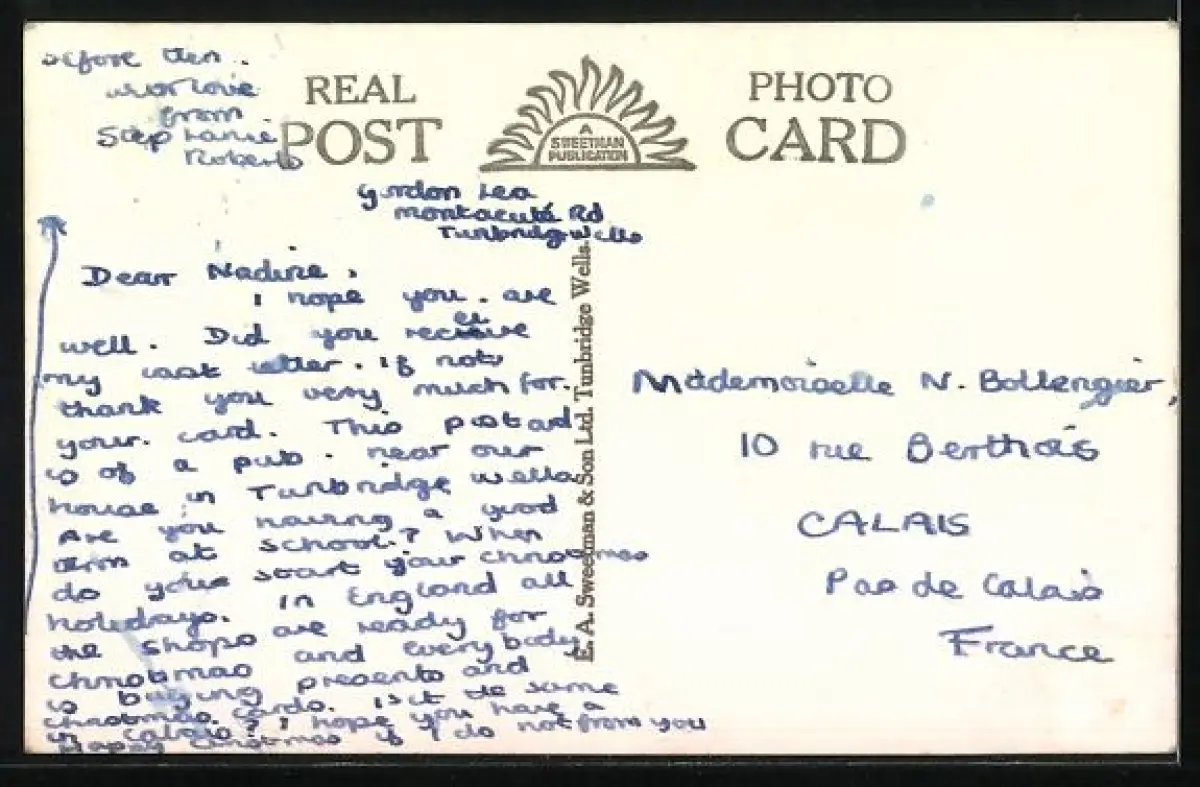 before then.
with love
from
Stephanie
Roberts
REAL PHOTO
POST CARD
A
SWEETMAN
PUBLICATION
Gordon Lea
Montacute Rd
Tunbridge Wells
Dear Nadine,
I hope you. are
well. Did you receive
my last letter. If not
thank you very much for.
your. card. This postcard
is of a pub. near our
house in Tunbridge Wells
Are you having a good
term at school? When
do you start your christmas
holidays. In England all
the shops are ready for
christmas and everybody
is buying presents and
christmas cards. Is it the same
in Calais? I hope you have a
Happy christmas if I do not from you
E. A. Sweetman & Son Ltd. Tunbridge Wells.
Mademoiselle N. Bollengier,
10 rue Berthois
CALAIS
Pas de Calais
France